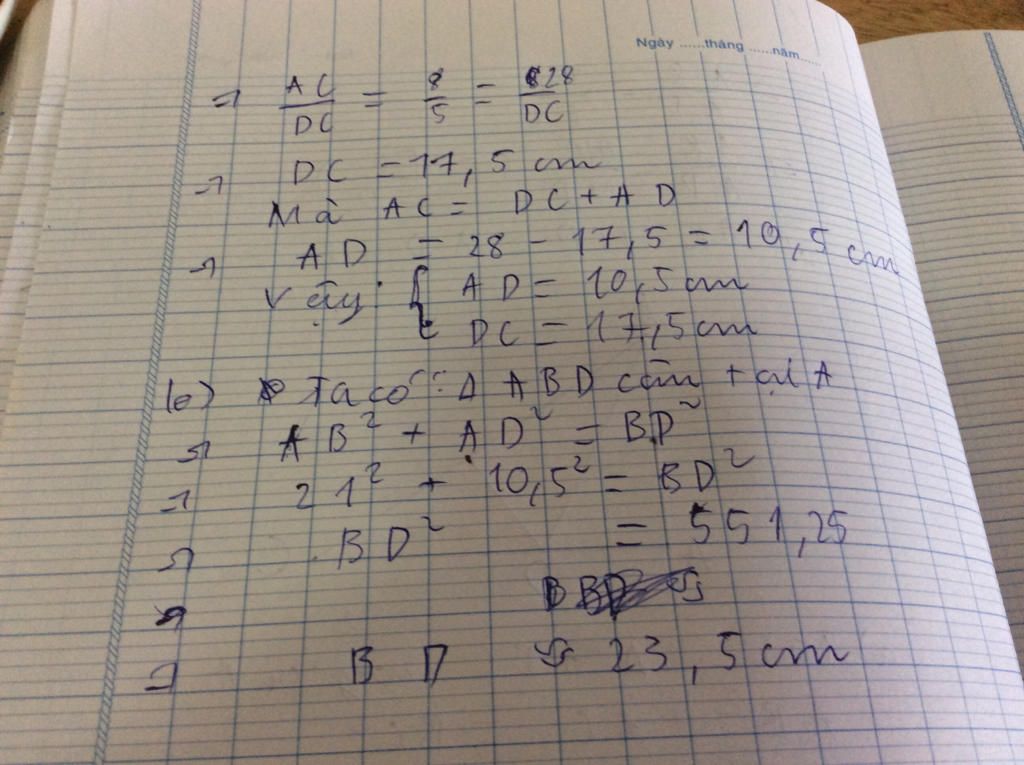 Ngày ......tháng ......năm......
⇒ AC/DC = 8/5 = 28/DC
⇒ DC = 17,5 cm
Mà AC = DC + AD
⇒ AD = 28 - 17,5 = 10,5 cm
Vậy { AD = 10,5 cm
DC = 17,5 cm
b) Ta có: Δ ABD cân tại A
⇒ AB² + AD² = BD²
⇒ 21² + 10,5² = BD²
⇒ BD² = 551,25
⇒ BD ≈ 23,5 cm